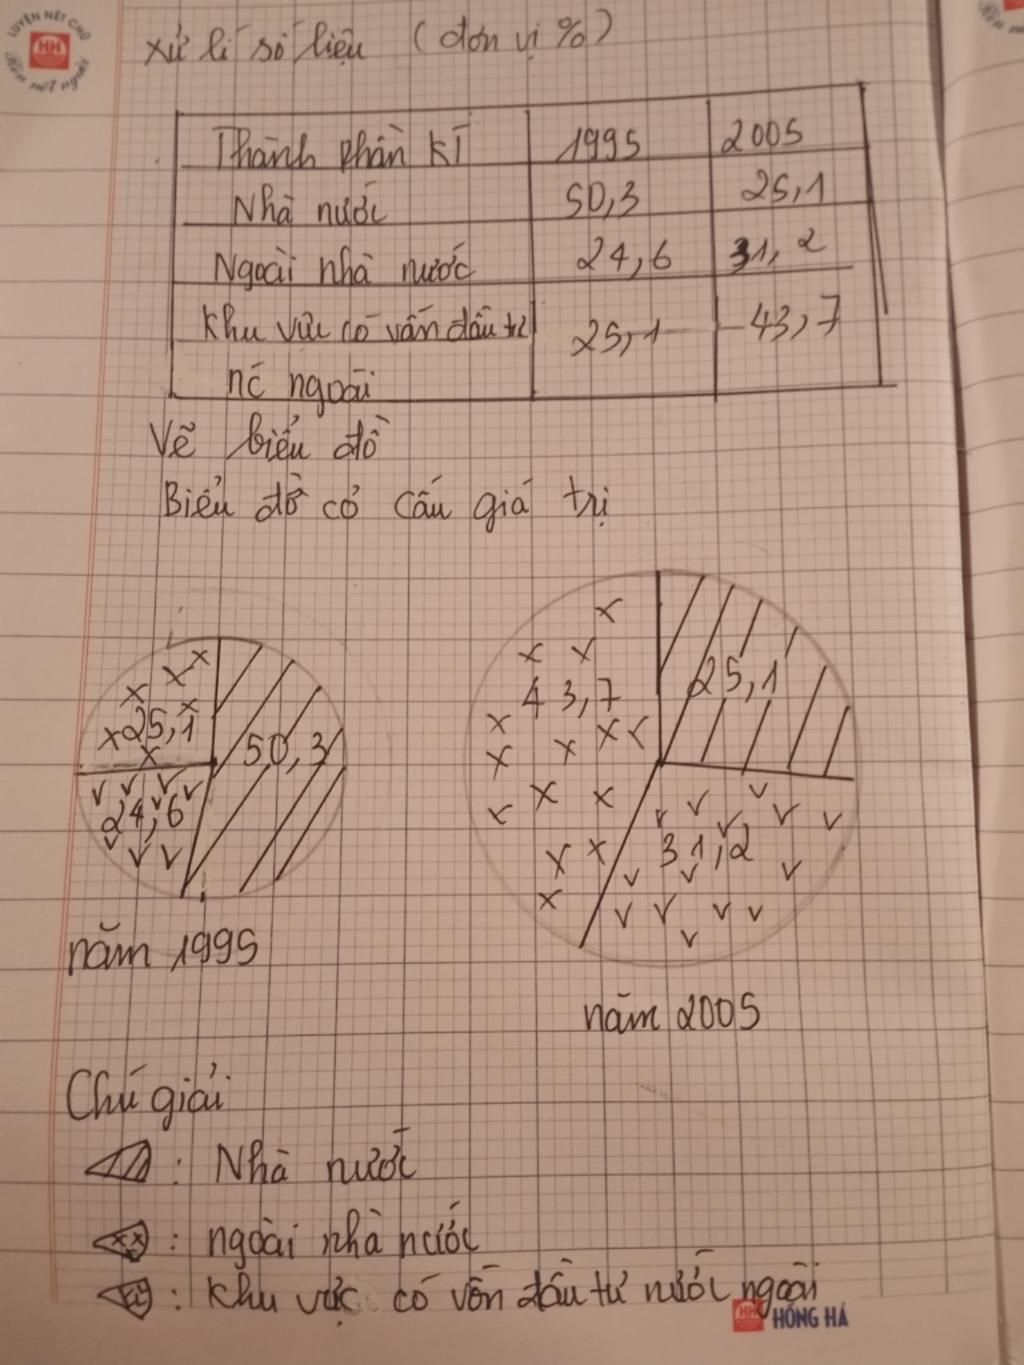 LUYỆN NÉT CHỮ
HH
Rèn nết người
xử lí số liệu (đơn vị %)
Thành phần KT 1995 2005
Nhà nước 50,3 25,1
Ngoài nhà nước 24,6 31,2
Khu vực có vấn đầu tư 25,1 43,7
nc ngoài
Vẽ biểu đồ
Biểu đồ cơ cấu giá trị
25,1
50,3
24,6
năm 1995
43,7
25,1
31,2
năm 2005
Chú giải
: Nhà nước
: ngoài nhà nước
: Khu vực có vốn đầu tư nước ngoài
HH HỒNG HÀ